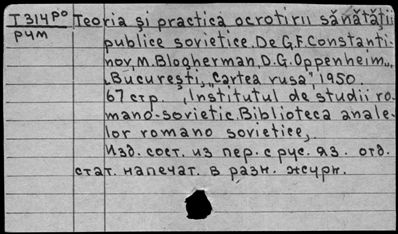 T314РО Teoria și practica ocrotirii sănătății
РУМ publice sovietice. De G.F. Constanti-
nov, M. Blogherman, D.G. Oppenheim„
București, „Cartea rusa", 1950.
67 стр. „Institutul de studii ro-
mano-sovietic. Biblioteca anale-
lor romano sovietice„
Изд. сост. из пер. с рус. яз. отд.
стат. напечат. в разн. журн.